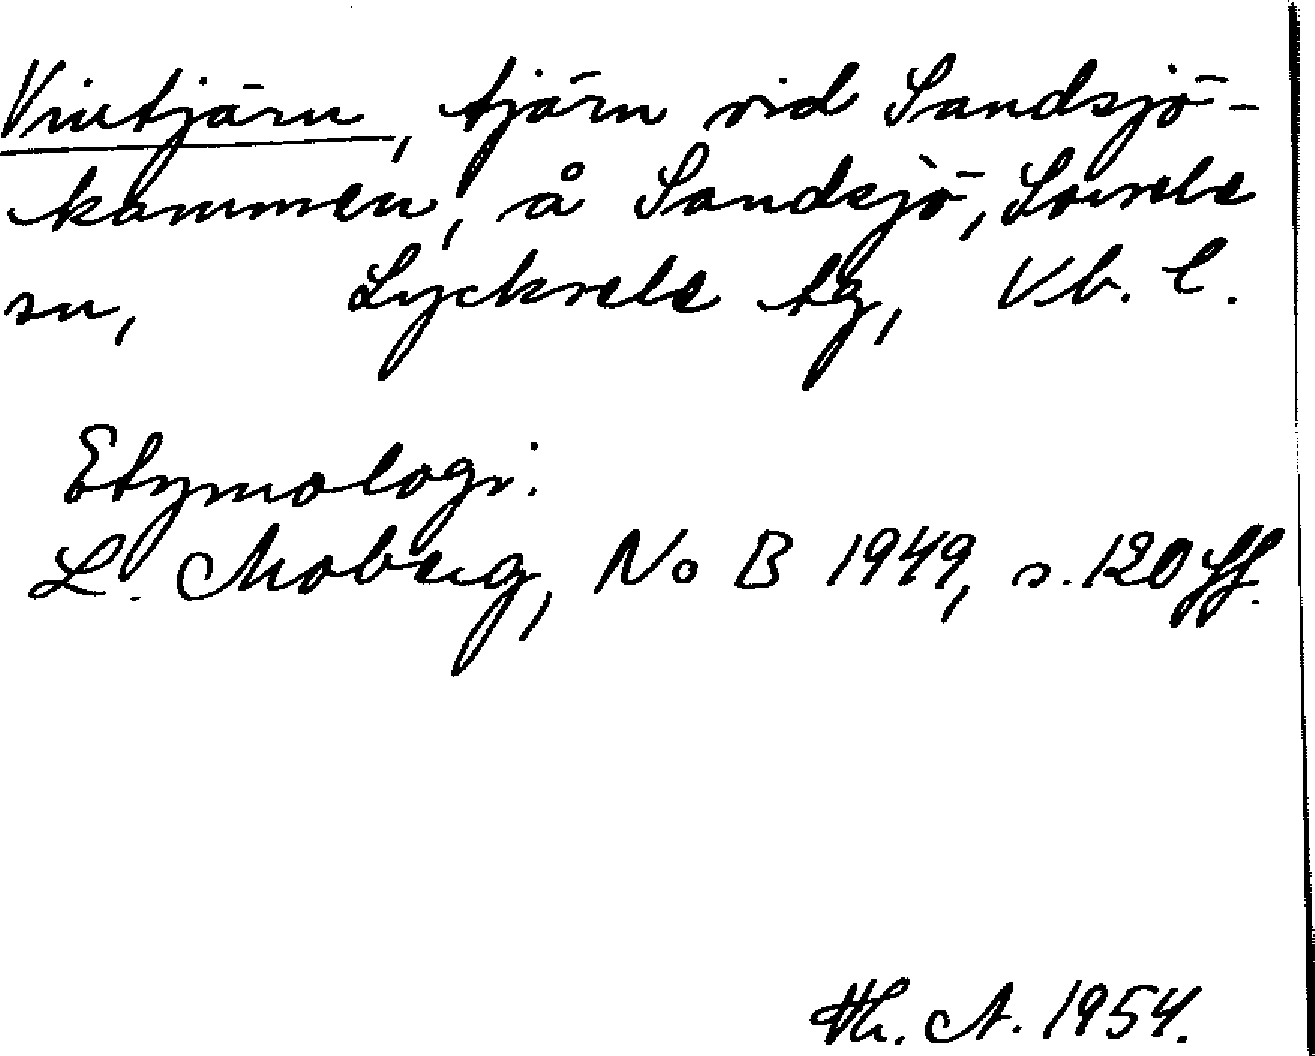 Vintjärn, tjärn vid Sandsjö-
kammen, å Sandsjö, Sorsele
sn, Lycksele tg, Vb. l.
Etymologi:
L. Moberg, NoB 1949, s. 120 ff.
Th. A. 1954.